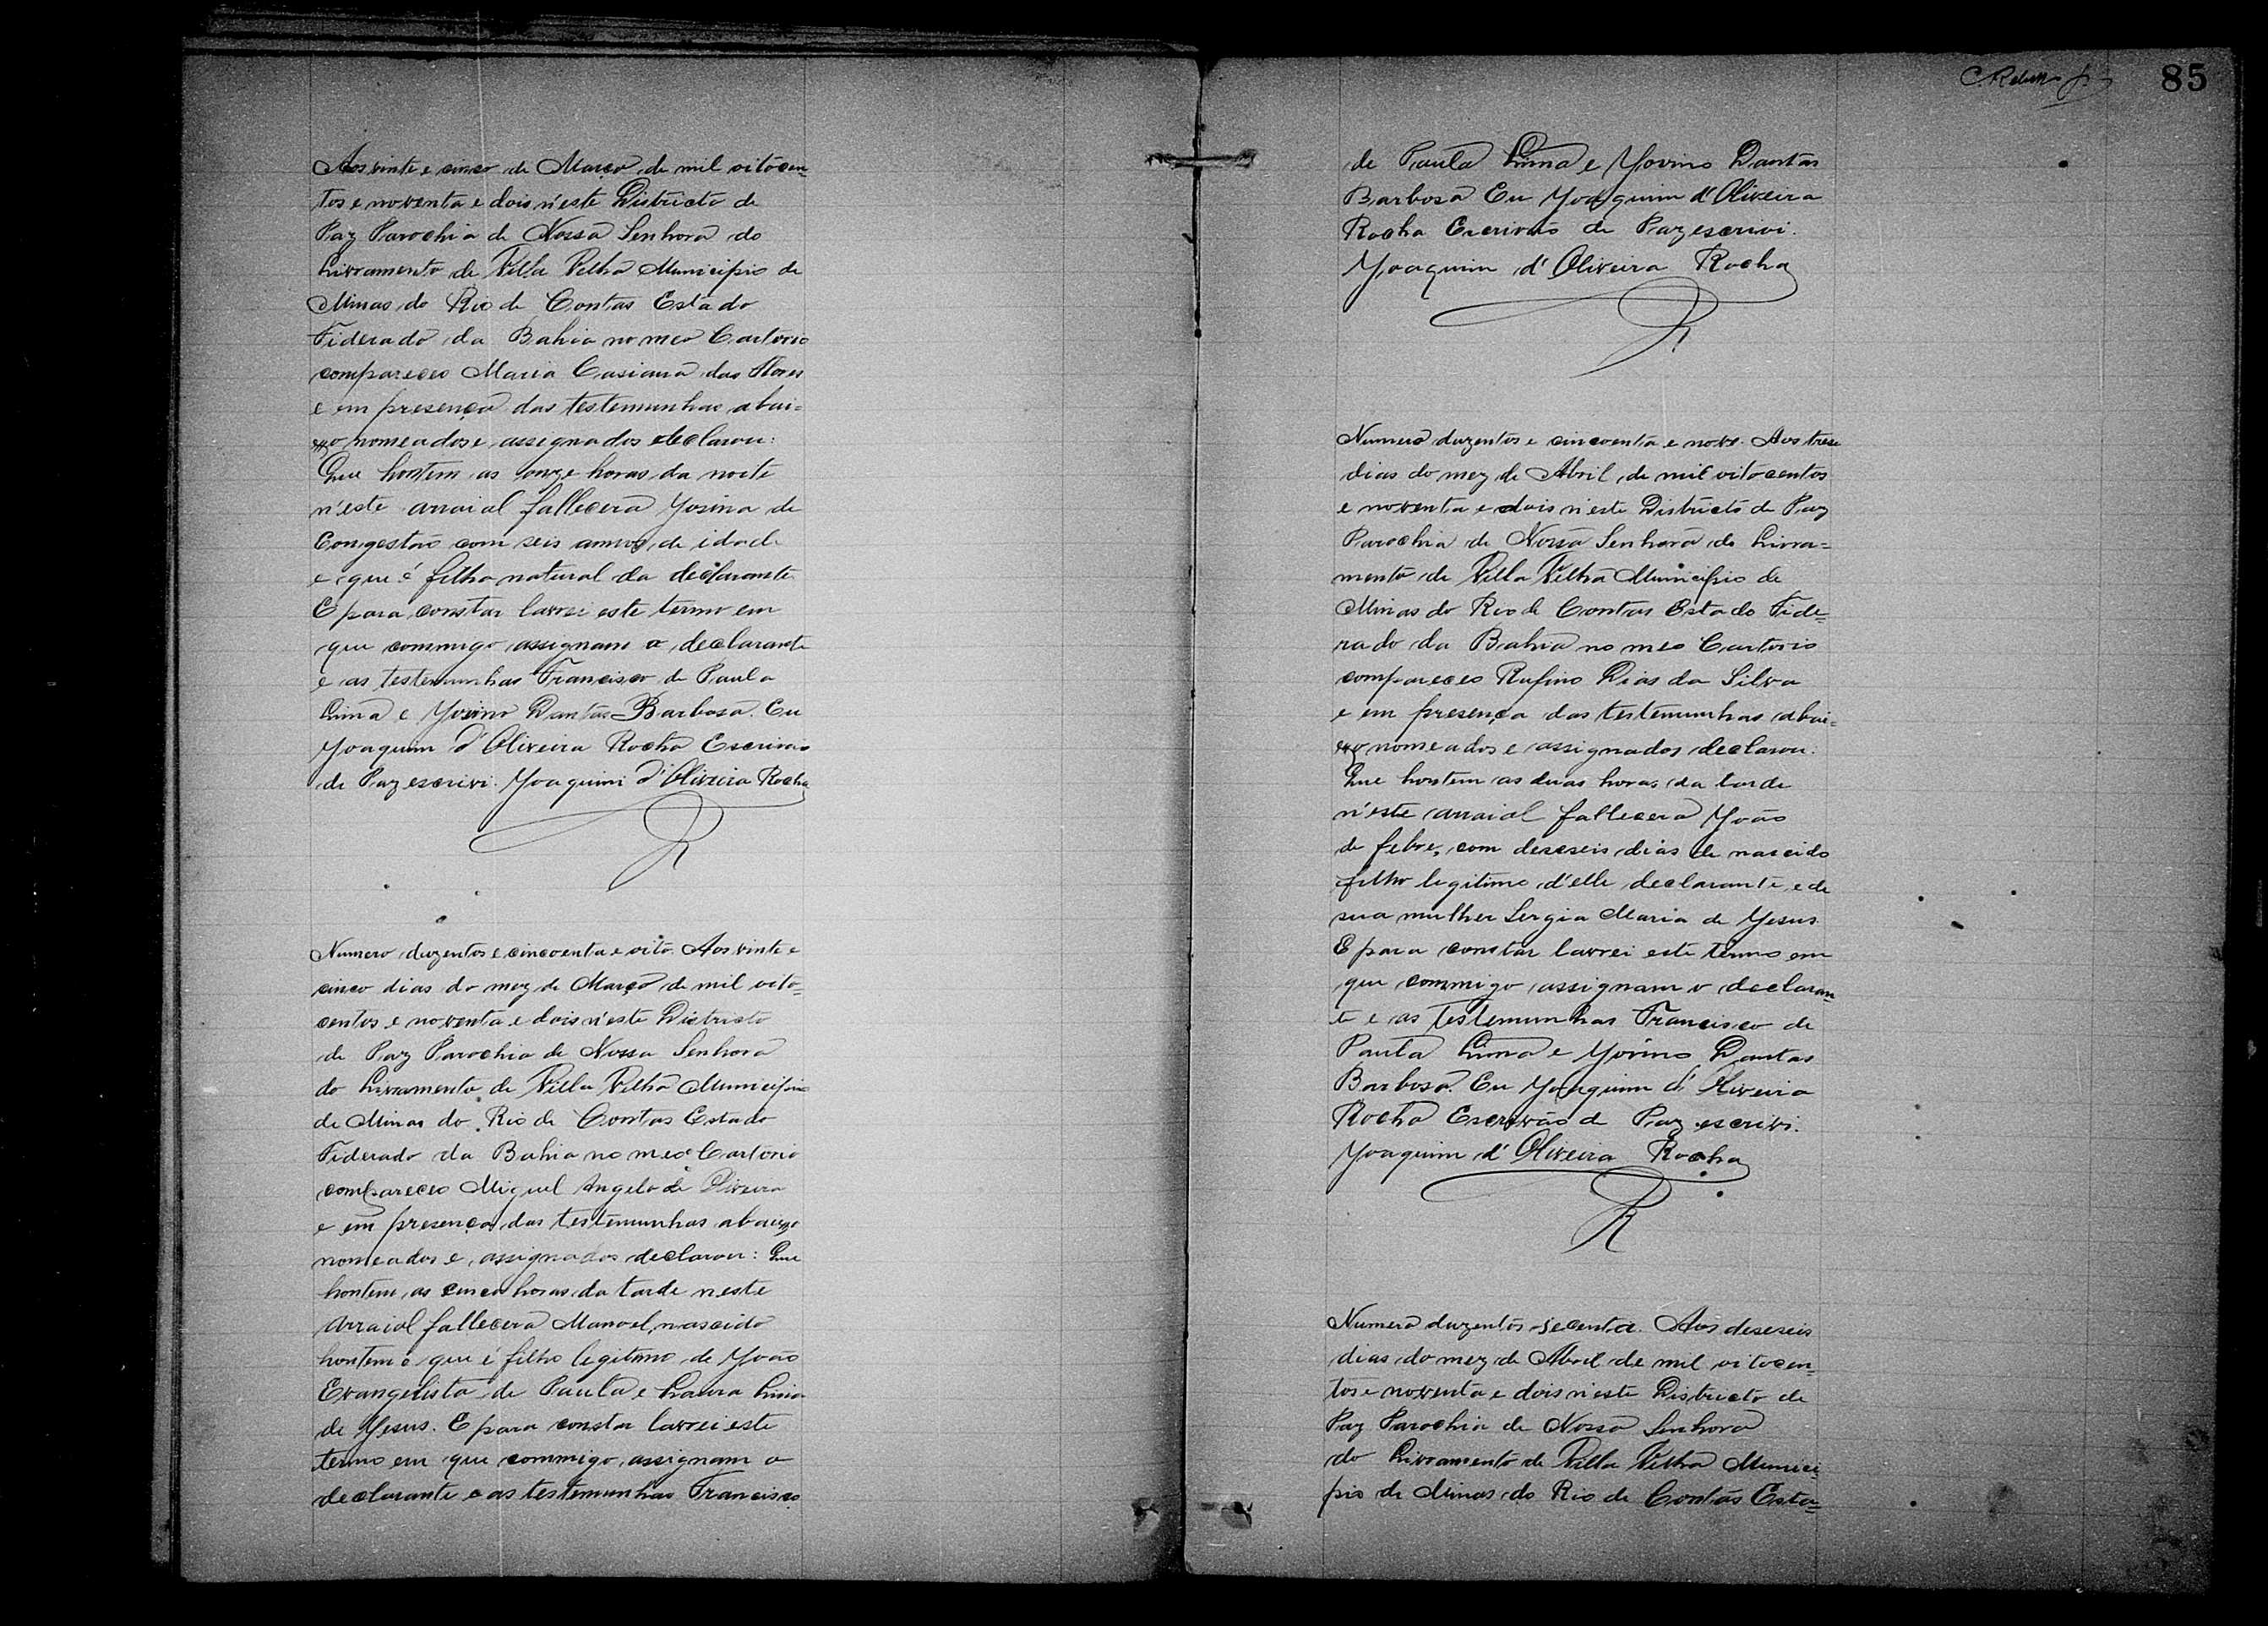 Aos vinte e cinco de Março de mil oitocen=
tos e noventa e dois n'este Districto de
Paz Parochia de Nossa Senhora do
Livramento de Villa Velha Municipio de
Minas do Rio de Contas Estado
Fiderado da Bahia no meo Cartorio
compareceo Maria Casiana das Flores
e em presença das testemunhas abai=
xo nomeados e assignados declarou:
Que hontem as onze horas da noite
n'este arraial fallecera Yosina de
Congestão com seis annos de idade
e que é filha natural da declarante
E para constar lavrei este termo em
que commigo assignam o declarante
e as testemunhas Francisco de Paula
Lima e Yovino Dantas Barbosa. Eu
Yoaquim d'Oliveira Rocha Escrivão
de Paz escrivi. Yoaquim d'Oliveira Rocha
R
Numero duzentos e cincoenta e oito. Aos vinte e
cinco dias do mez de Março de mil oito=
centos e noventa e dois n'este Districto
de Paz Parochia de Nossa Senhora
do Livramento de Villa Velha Municipio
de Minas do Rio de Contas Estado
Fiderado da Bahia no meo Cartorio
compareceo Miguel Angelo de Oliveira
e em presença das testemunhas abaixo
nomeados e assignados declarou: Que
hontem as cinco horas da tarde neste
Arraial fallecera Manoel, nascido
hontem e que é filho legitimo de Yoão
Evangelista de Paula e Laura
de Yesus. E para constar lavrei este
termo em que commigo assignam o
declarante e as testemunhas Francisco
C. Rebello Jr. 85
de Paula Lima e Yovino Dantas
Barbosa Eu Yoaquim d'Oliveira
Rocha Escrivão de Paz escrivi.
Yoaquim d'Oliveira Rocha
R
Numero duzentos e cincoenta e nove. Aos trese
dias do mez de Abril de mil oitocentos
e noventa e dois n'este Districto de Paz
Parochia de Nossa Senhora do Livra=
mento de Villa Velha Municipio de
Minas do Rio de Contas Estado Fide=
rado da Bahia no meo Cartorio
compareceo Rufino Dias da Silva
e em presença das testemunhas abai=
xo nomeados e assignados declarou:
Que hontem as duas horas da tarde
n'este arraial fallecera Yoão
de febre, com deseseis dias de nascido
filho legitimo d'elle declarante e de
sua mulher Sergia Maria de Yesus.
E para constar lavrei este termo em
que commigo assignam o declaran
te e as testemunhas Francisco de
Paula Lima e Yovino Dantas
Barbosa. Eu Yoaquim d'Oliveira
Rocha Escrivão de Paz escrivi.
Yoaquim d'Oliveira Rocha
R
Numero duzentos secenta. Aos deseseis
dias do mez de Abril de mil oitocen=
tos e noventa e dois n'este Districto de
Paz Parochia de Nossa Senhora
do Livramento de Villa Velha Munici
pio de Minas do Rio de Contas Esta=